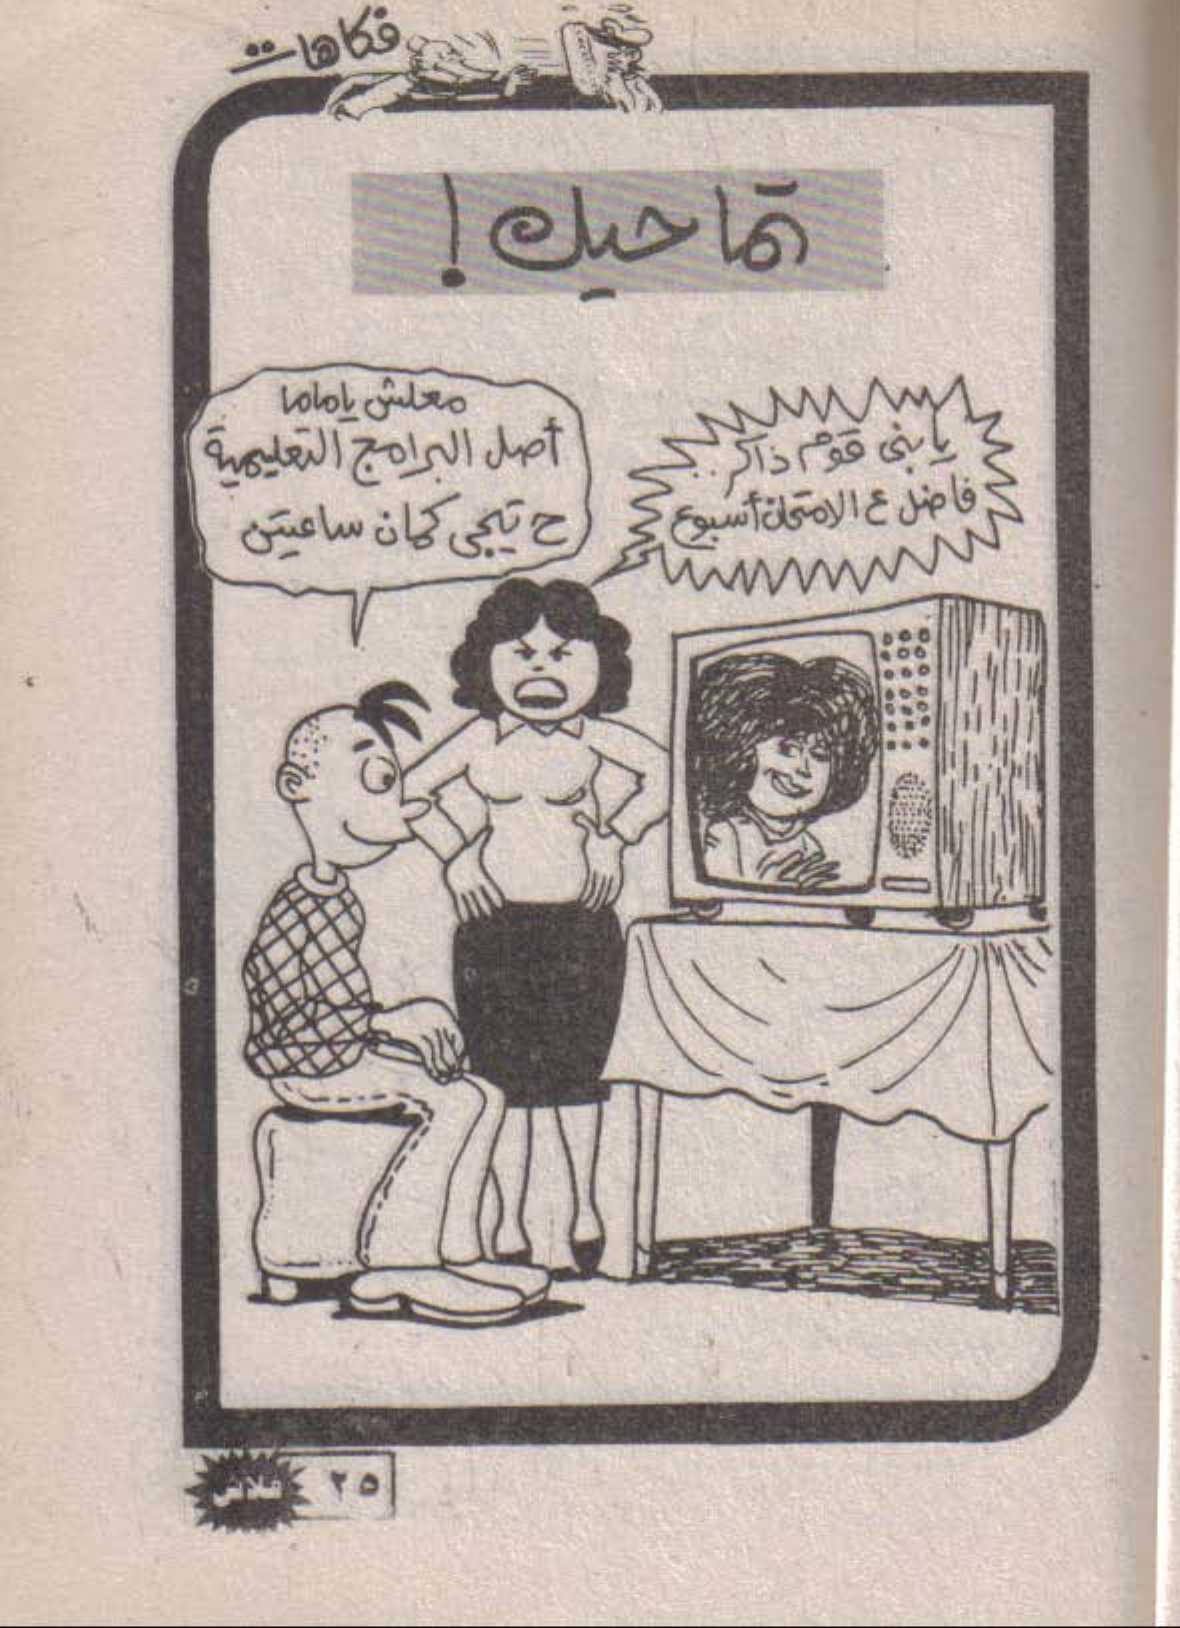 فكاهات
تماحيك!
يا بنى قوم ذاكر..
فاضل ع الامتحان أسبوع
معلش ياماما
أصل البرامج التعليمية
ح تيجى كمان ساعيتن
٢٥
فلاش